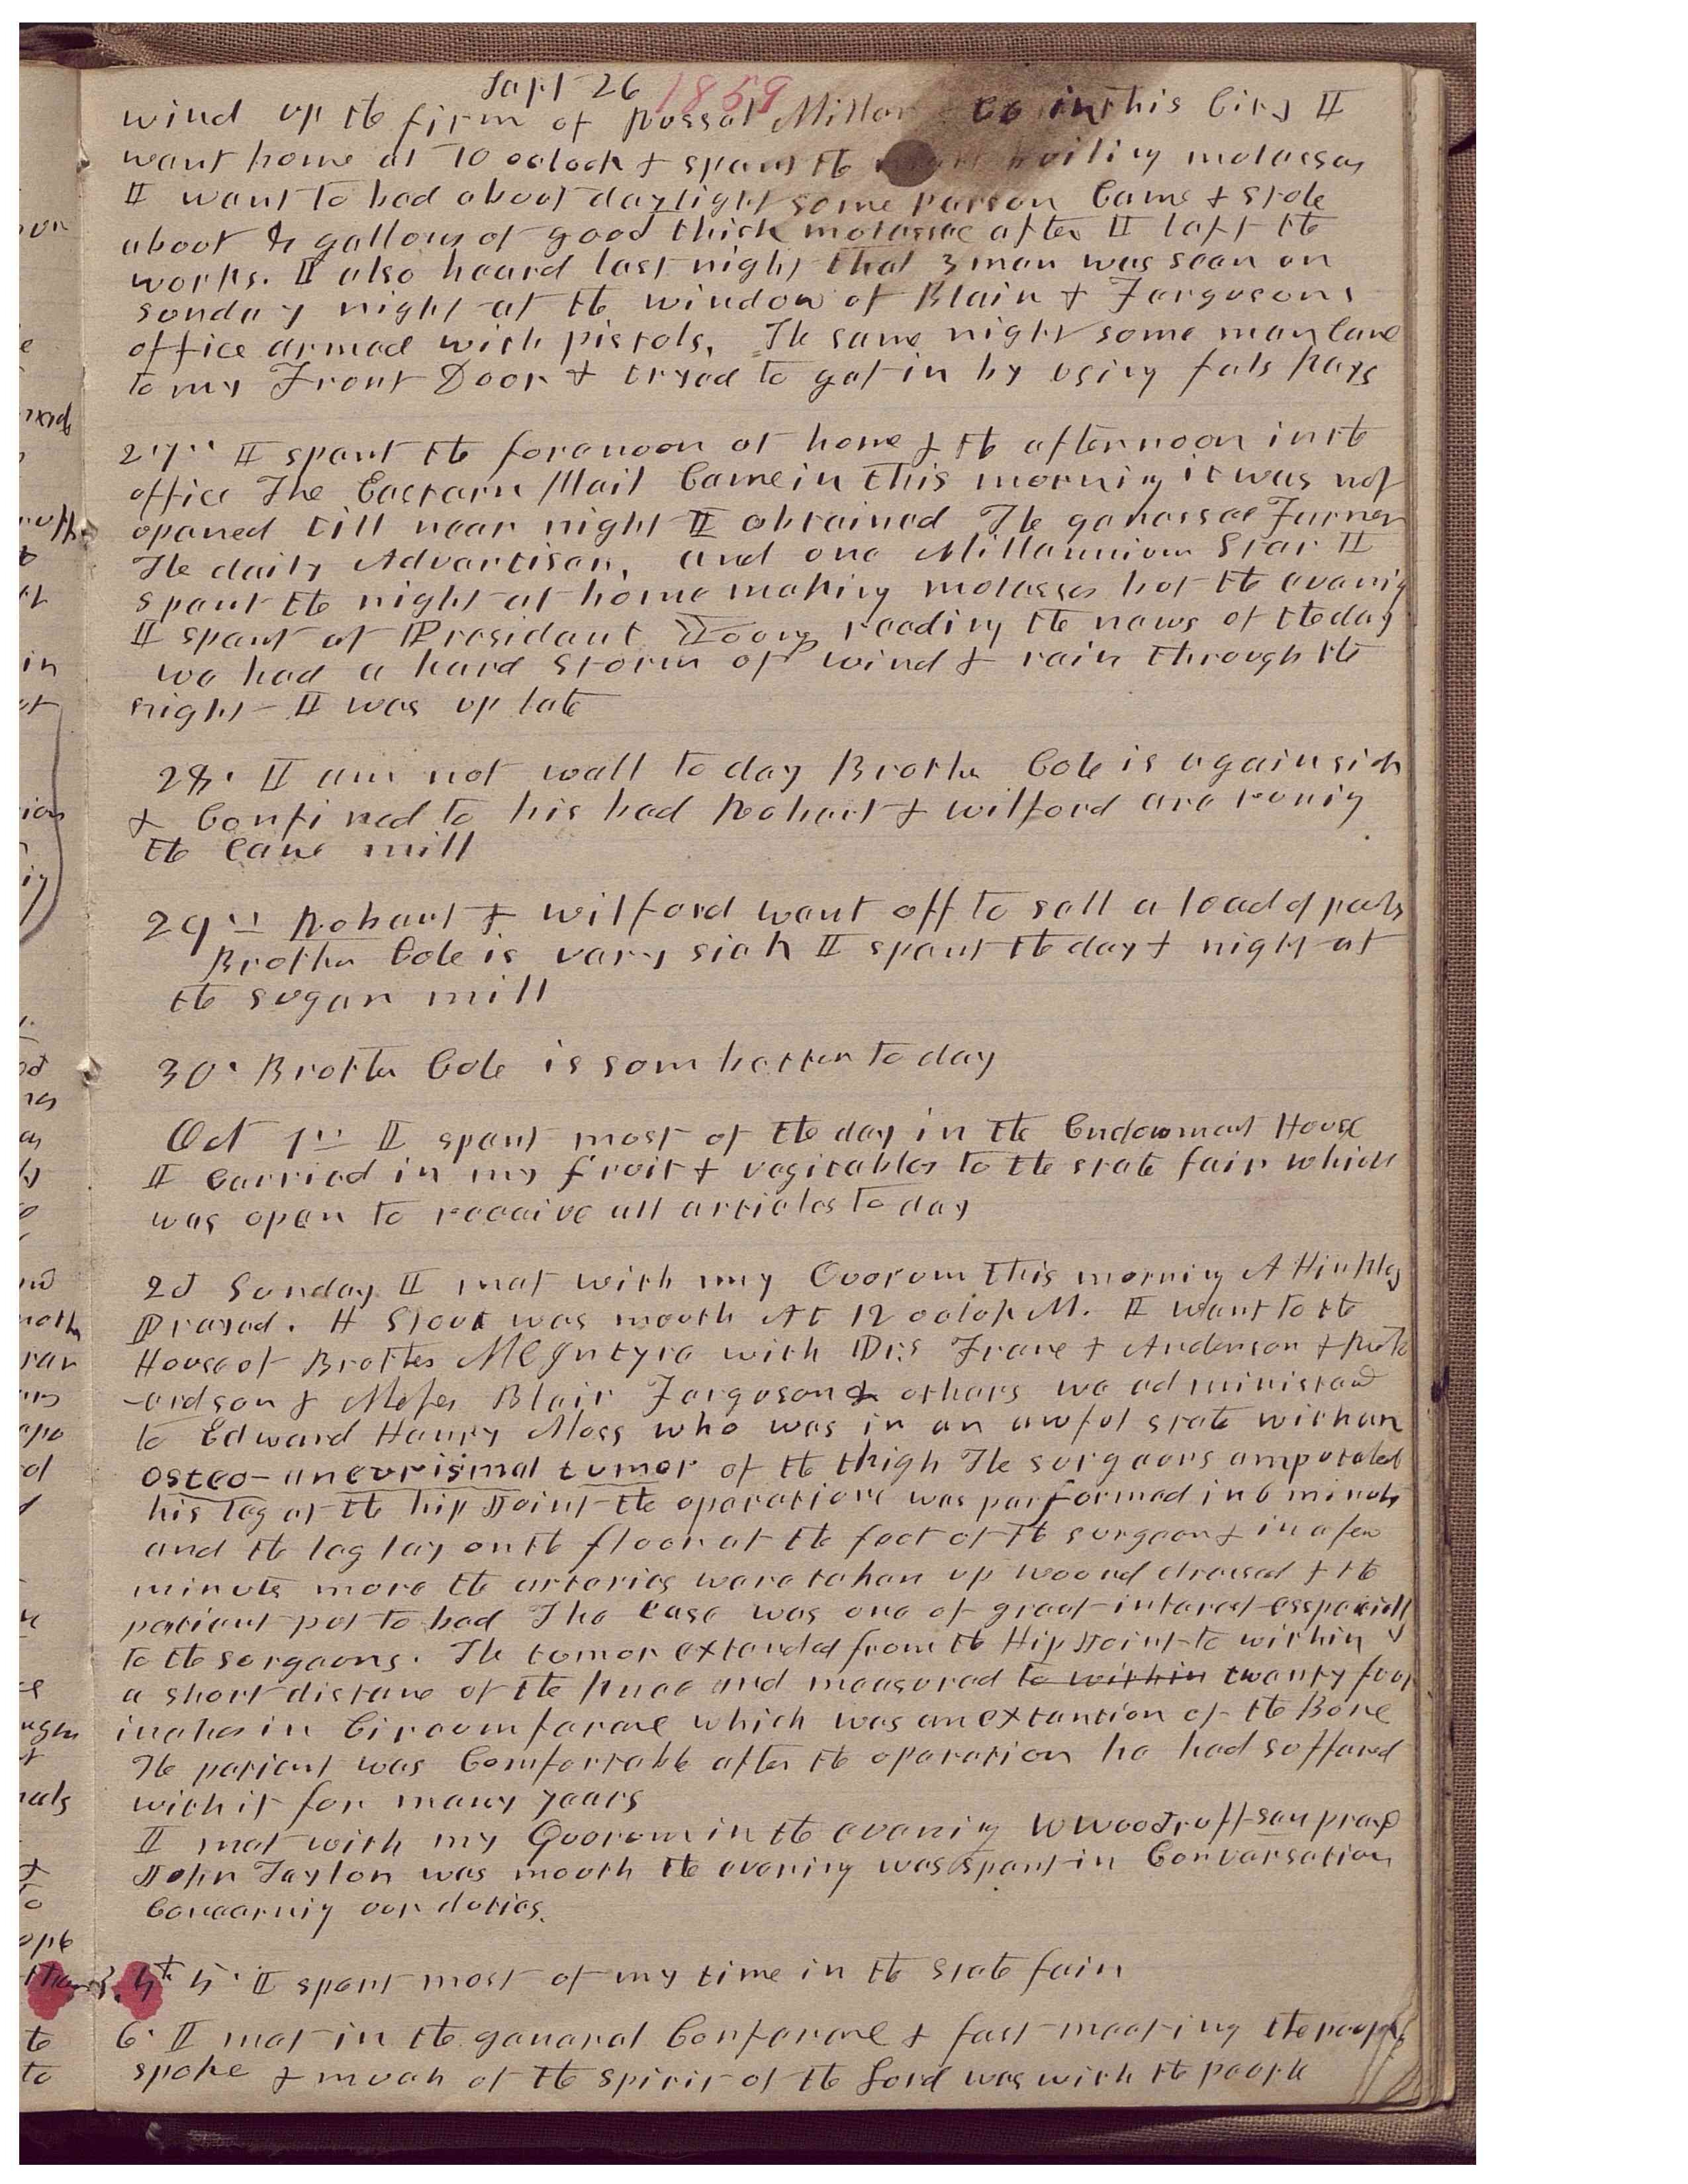 Sept 26 1859
wind up the firm of Russel Miller & Co in this City I
went home at 10 oclock & spent the night boiling molasses
I went to bed about daylight some person Came & stole
about 4 gallons of good thick molasses after I left the
works. I also heard last night that 3 men was seen on
sunday night at the window of Blair & Fergusons
office armed with pistols, The same night some man came
to my Front Door & tryed to get in by using fals keys
27th I spent the forenoon at home & the afternoon in the
office The Eastern Mail Came in this morning it was not
opened till near night I obtained The genessee Farmer
The daily Advertiser, and one Millennium Star I
spent the night at home making molasses but the evenig
I spent at President Youngs reading the news of the day
we had a hard storm of wind & rain through the
night I was up late
28. I am not well to day Brother Cole is again sick
& Confined to his bed Robert & wilford are runig
the cane mill
29th Robert & wilford went off to sell a load of
Brother Cole is very sick I spent the day & night at
the sugar mill
30. Brother Cole is som better to day
Oct 1st I spent most of the day in the Endowment House
I carried in my fruit & vegitables to the state fair which
was open to receive all articles to day
2d Sunday I met with my Quorum this morning A Hinkley
Prayed. H Stout was mouth At 12 oclok M. I went to the
House of Brother McIntyre with Drs France & Anderson & Rich
-ardson & Mesrs Blair Ferguson & others we administed
to Edward Henry Moss who was in an awful state with an
osteo-aneurismal tumor of the thigh The surgeons amputated
his leg at the hip Joint the operatione was performed in 6 minuts
and the leg lay on the floor at the feet of the surgeon & in a few
minuts more the arteries were taken up wound dressed & the
patient put to bed The case was one of great interest esspecially
to the surgeons. The tumor extended from the Hip Joint to within
a short distane of the knee and measured to within twenty four
inches in Circumferance which was an extention of the Bone
The patient was Comfortable after the operation he had suffered
with it for many years
I met with my Quorum in the evenig W Woodruff sen prayed
John Taylor was mouth the evening was spent in Conversation
Concernig our duties.
3. 4th 5. I spent most of my time in the state fair
6. I met in the general Conferance & fast meeting the people
spoke & much of the spirit of the Lord was with the people